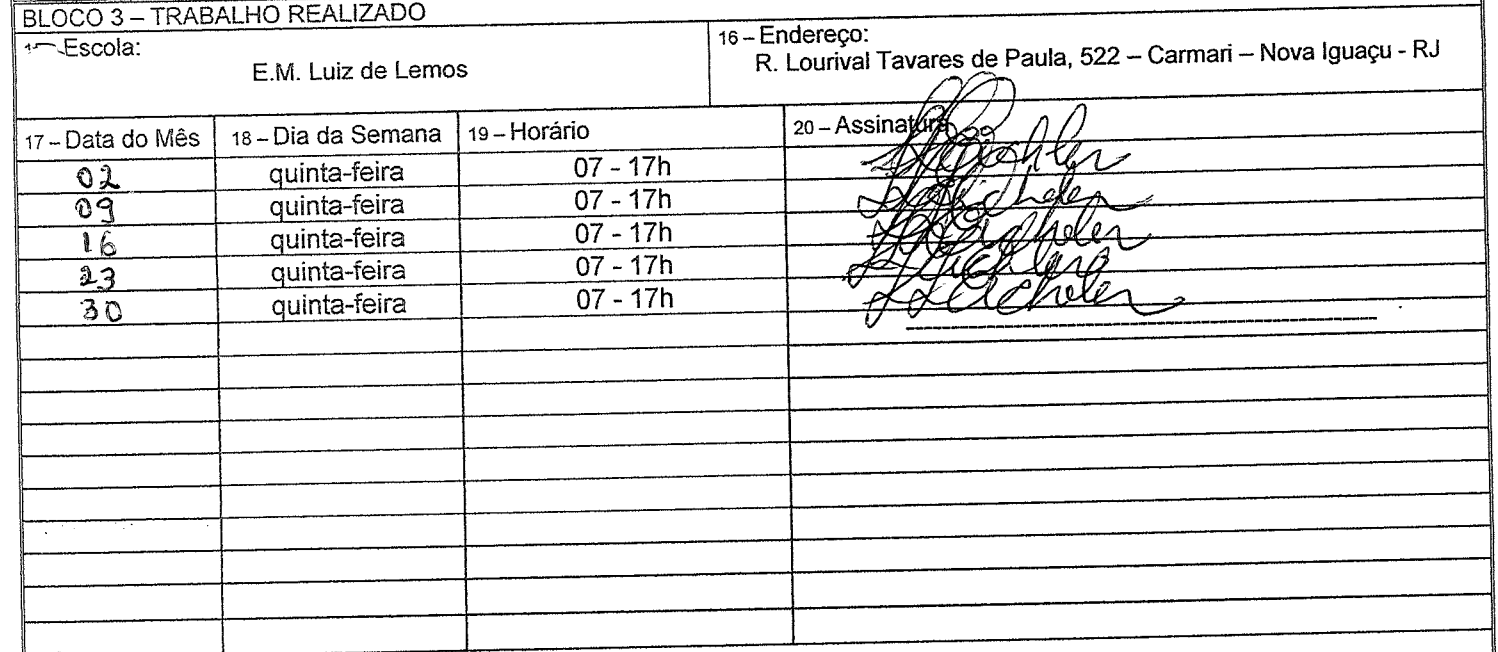 BLOCO 3 – TRABALHO REALIZADO
Escola:
E.M. Luiz de Lemos
16 – Endereço:
R. Lourival Tavares de Paula, 522 – Carmari – Nova Iguaçu - RJ
17 – Data do Mês 18 – Dia da Semana 19 – Horário 20 – Assinatura
02 quinta-feira 07 - 17h
09 quinta-feira 07 - 17h
16 quinta-feira 07 - 17h
23 quinta-feira 07 - 17h
30 quinta-feira 07 - 17h